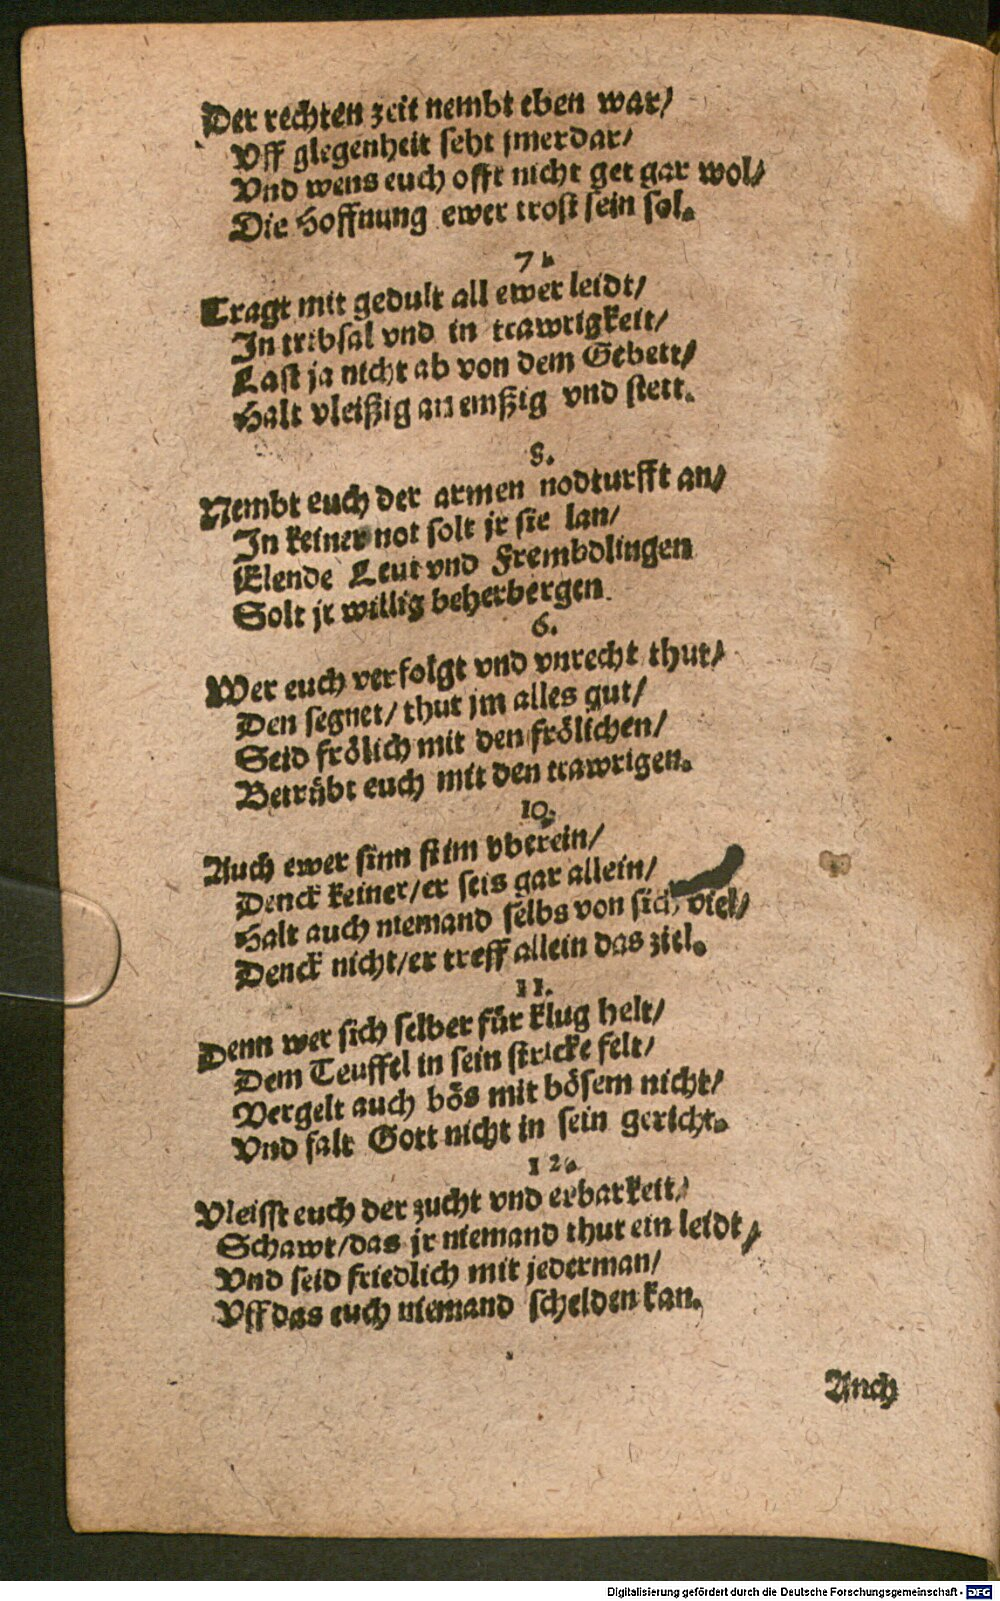 Der rechten zeit nembt eben war/
Vff glegenheit seht jmerdar/
Vnd wens euch offt nicht get gar wol/
Die Hoffnung ewer trost sein sol.
7.
Tragt mit gedult all ewer leidt/
In tribsal vnd in trawrigkeit/
Last ja nicht ab von dem Gebett/
Halt vleißig an emßig vnd stett.
8.
Nembt euch der armen nodturfft an/
In keiner not solt jr sie lan/
Elende Leut vnd Frembdlingen
Solt jr willig beherbergen.
6.
Wer euch verfolgt vnd vnrecht thut/
Den segnet/ thut jm alles gut/
Seid frölich mit den frölichen/
Betrübt euch mit den trawrigen.
10.
Auch ewer sinn stim vberein/
Denck keiner/er seis gar allein/
Halt auch niemand selbs von sich viel/
Denck nicht/er treff allein das ziel.
11.
Denn wer sich selber für klug helt/
Dem Teuffel in sein stricke felt/
Vergelt auch bös mit bösem nicht/
Vnd falt Gott nicht in sein gericht.
12.
Vleisst euch der zucht vnd erbarkeit/
Schawt/das jr niemand thut ein leidt/
Vnd seid friedlich mit jederman/
Vff das euch niemand schelden kan.
Auch
Digitalisierung gefördert durch die Deutsche Forschungsgemeinschaft - DFG